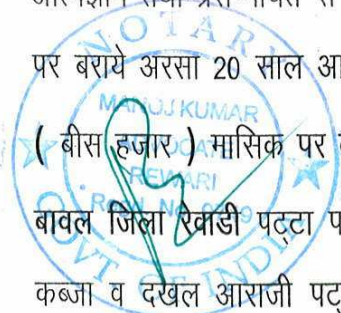 पर बराये अरसा 20 साल
( बीस हजार ) मासिक पर
बावल जिला रेवाडी पट्टा
कब्जा व दखल आराजी
NOTARY
MANOJ KUMAR
ADVOCATE
REWARI
GOVT OF INDIA